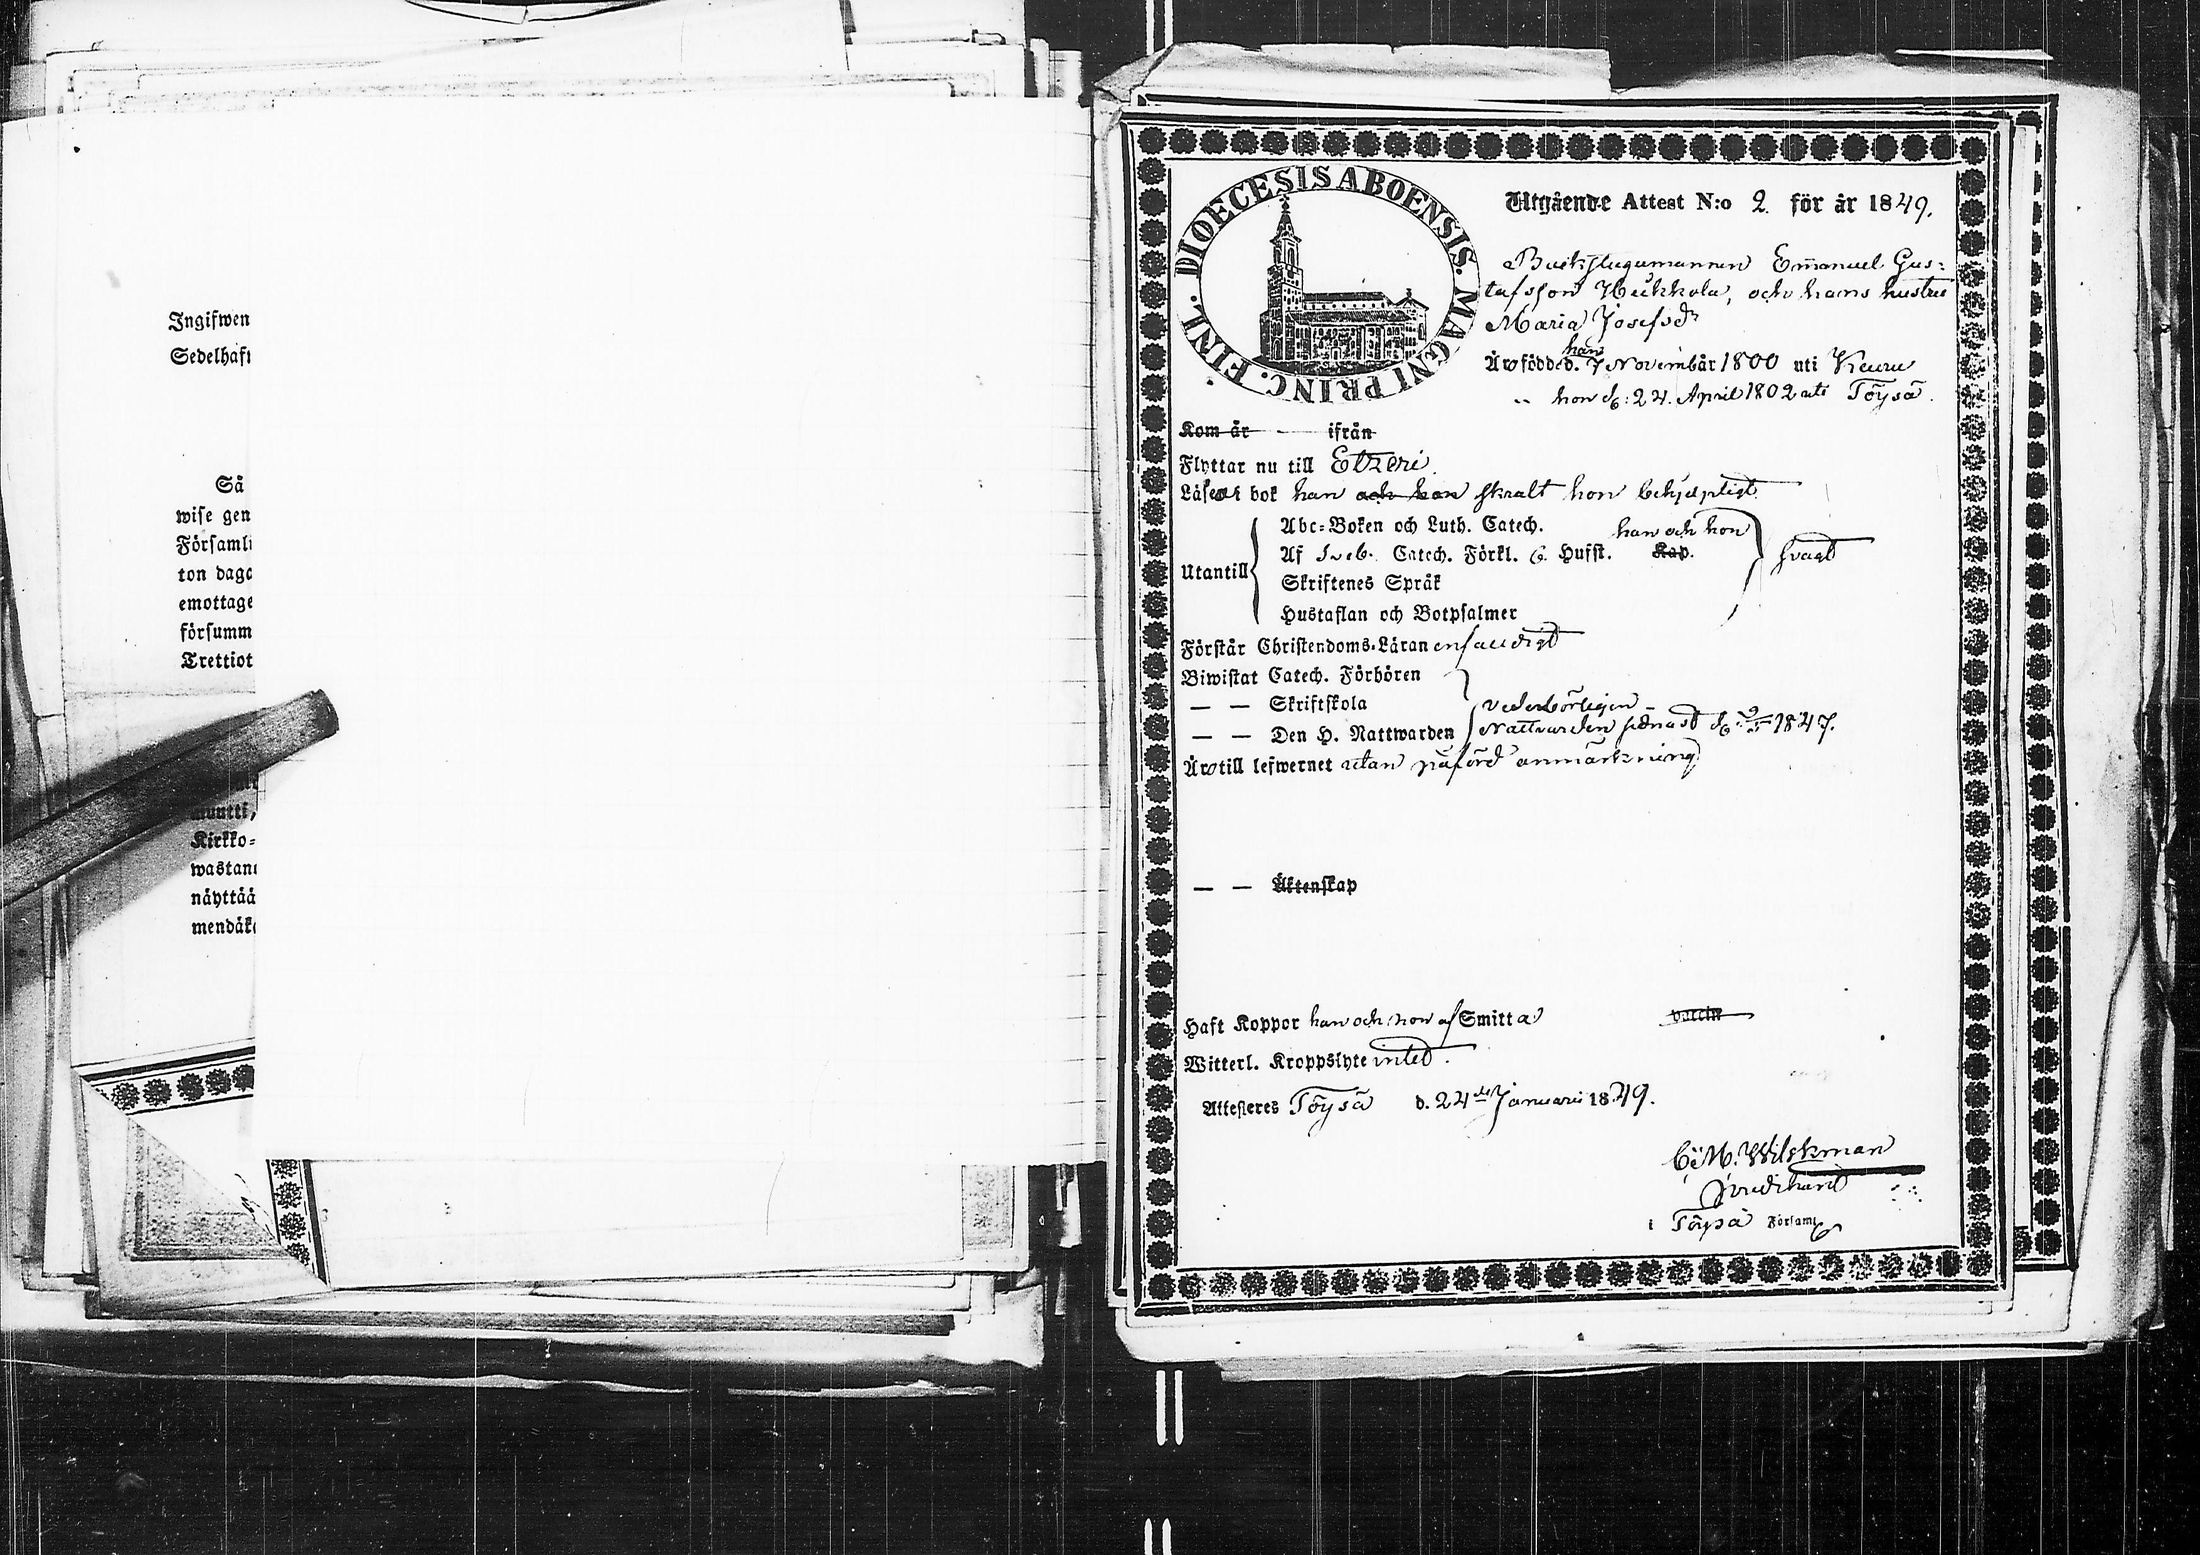 Ingifwen
Sedelhaft
Så
wise gen
Församli
ton daga
emottage
försumm
Trettiot
muutti,
Kirkko-
wastane
näyttää
mendäk
DIOECESIS ABOENSIS. MAGNI PRINC. FINL.
Utgående Attest N:o 2. för år 1849.
Emanuel Gus-
tafsson Heikkola, och hans hustru
Maria Josefsdr
han
Äro födde d. 7 November 1800 uti Keuru
" hon d: 24 April 1802 uti Töysä.
Kom år — ifrån
Flyttar nu till Etzeri.
Läser i bok han och hon svalt hon behjelpligt
Abc-Boken och Luth. Catech. han och hon
Utantill Af Sveb. Catech. Förkl. & Hufst. Kap. svagt
Skriftenes Språk
Hustaflan och Botpsalmer
Förstår Christendoms-Läran enfaldigt
Biwistat Catech. Förhören
— — Skriftskola vederbörligen -
— — Den H. Nattwarden Nattvarden senast d. 1847.
Äro till lefwernet utan påförd anmärkning
— — Äktenskap
Haft Koppor han och hon af Smitta vaccin
Witterl. Kroppslyte intet.
Attesteres Töysä d. 24de Januarii 1849.
C: M. Wilskman
i Töysä Församl